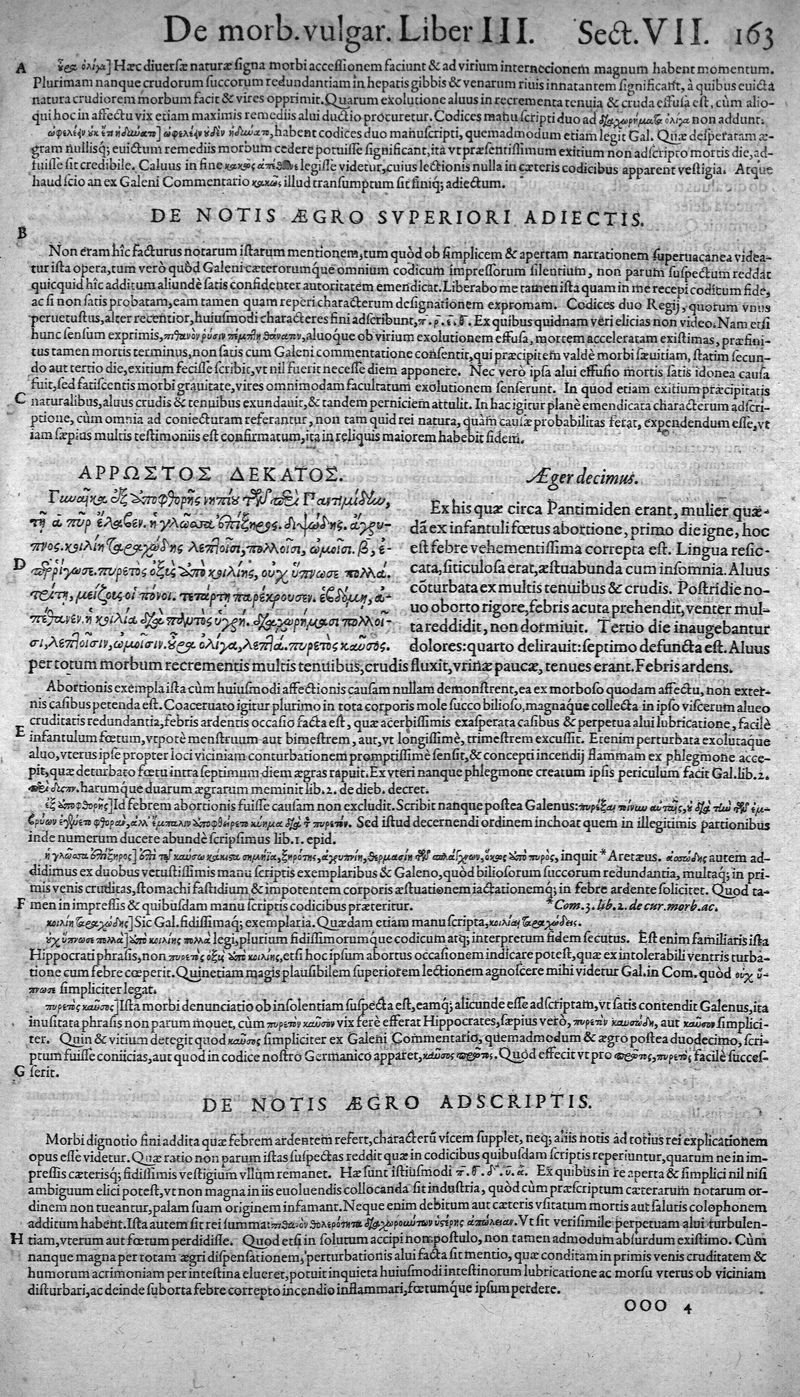 De morb. vulgar. Liber III. Sect. VII. 163
A
ὄυρα ὀλίγα] Hæc diuersæ naturæ signa morbi accessionem faciunt & ad virium internecionem magnum habent momentum.
Plurimam nanque crudorum succorum redundantiam in hepatis gibbis & venarum riuis innatantem significant, à quibus euicta
natura crudiorem morbum facit & vires opprimit. Quarum exolutione aluus in recrementa tenuia & cruda effusa est, cùm alio-
qui hoc in affectu vix etiam maximis remediis alui ductio procuretur. Codices manu scripti duo ad ὀλίγα non addunt.
habent codices duo manuscripti, quemadmodum etiam legit Gal. Quæ desperatam æ-
gram nullisq; euictum remediis morbum cedere potuisse significant, ita vt præsentissimum exitium non adscripto mortis die, ad-
fuisse sit credibile. Caluus in fine legisse videtur, cuius lectionis nulla in cæteris codicibus apparent vestigia. Atque
haud scio an ex Galeni Commentario illud transumptum sit finiq; adiectum.
DE NOTIS ÆGRO SVPERIORI ADIECTIS.
B
Non eram hîc facturus notarum istarum mentionem, tum quòd ob simplicem & apertam narrationem superuacanea videa-
tur ista opera, tum verò quòd Galeni cæterorumque omnium codicum impressorum silentium, non parum suspectum reddat
quicquid hîc additum aliunde satis confidenter autoritatem emendicat. Liberabo me tamen ista quam in me recepi coditum fide,
ac si non satis probatam, eam tamen quam reperi characterum designationem expromam. Codices duo Regij, quorum vnus
peruetustus, alter recentior, huiusmodi characteres fini adscribunt, Ex quibus quidnam veri elicias non video. Nam etsi
hunc sensum exprimis, aluoque ob virium exolutionem effusa, mortem acceleratam existimas, præfini-
tus tamen mortis terminus, non satis cum Galeni commentatione consentit, qui præcipitem valdè morbi sæuitiam, statim secun-
do aut tertio die, exitium fecisse scribit, vt nil fuerit necesse diem apponere. Nec verò ipsa alui effusio mortis satis idonea causa
fuit, sed fatiscentis morbi grauitate, vires omnimodam facultatum exolutionem senserunt. In quod etiam exitium præcipitatis
C naturalibus, aluus crudis & tenuibus exundauit, & tandem perniciem attulit. In hac igitur planè emendicata characterum adscri-
ptione, cùm omnia ad coniecturam referantur, non tam quid rei natura, quàm causæ probabilitas ferat, expendendum esse, vt
iam sæpius multis testimoniis est confirmatum, ita in reliquis maiorem habebit fidem.
ΑΡΡΩΣΤΟΣ ΔΕΚΑΤΟΣ.
Γυναῖκα ἐξ ὑποφθορῆς νηπίου τῶν περὶ Παντιμίδην,
τῇ α. πῦρ ἔλαβεν. ἡ γλῶσσα ἐπίξηρος. διψώδης. ἄγρυ-
πνος. κοιλίη ταραχώδης λεπτοῖσι, πολλοῖσι, ὠμοῖσι. β, ἐ-
D πεῤῥίγωσε. πυρετὸς ὀξὺς ἀπὸ κοιλίης, οὐχ ὕπνωσε πολλά.
τρίτῃ, μείζους οἱ πόνοι. τετάρτῃ παρέκρουσεν. ἑβδόμῃ, ἀ-
πέθανεν. ἡ κοιλία διὰ παντὸς ὑγρὴ. διαχωρήμασι πολλοῖ-
σι, λεπτοῖσιν, ὠμοῖσιν. οὖρα ὀλίγα, λεπτά. πυρετὸς καῦσος.
Æger decimus.
Ex his quæ circa Pantimiden erant, mulier quæ-
dā ex infantuli fœtus abortione, primo die igne, hoc
est febre vehementissima correpta est. Lingua resic-
cata, siticulosa erat, æstuabunda cum insomnia. Aluus
cōturbata ex multis tenuibus & crudis. Postridie no-
uo oborto rigore, febris acuta prehendit, venter mul-
ta reddidit, non dormiuit. Tertio die inaugebantur
dolores: quarto delirauit: septimo defuncta est. Aluus
per totum morbum recrementis multis tenuibus, crudis fluxit, vrinæ paucæ, tenues erant. Febris ardens.
Abortionis exempla ista cùm huiusmodi affectionis causam nullam demonstrent, ea ex morboso quodam affectu, non exter-
nis casibus petenda est. Coaceruato igitur plurimo in tota corporis mole succo bilioso, magnáque collecta in ipso viscerum alueo
cruditatis redundantia, febris ardentis occasio facta est, quæ acerbissimis exasperata casibus & perpetua alui lubricatione, facilè
E infantulum fœtum, vtpotè menstruum aut bimestrem, aut, vt longissimè, trimestrem excussit. Etenim perturbata exolutaque
aluo, vterus ipse propter loci viciniam conturbationem promptissimè sensit, & concepti incendij flammam ex phlegmone acce-
pit, quæ deturbato fœtu intra septimum diem ægras rapuit. Ex vteri nanque phlegmone creatum ipsis periculum facit Gal. lib. 2.
harumque duarum ægrarum meminit lib. 2. de dieb. decret.
ἐξ ὑποφθορῆς] Id febrem abortionis fuisse causam non excludit. Scribit nanque postea Galenus:
Sed istud decernendi ordinem inchoat quem in illegitimis partionibus
inde numerum ducere abundè scripsimus lib. 1. epid.
ἡ γλῶσσα ἐπίξηρος] inquit *Aretæus. autem ad-
didimus ex duobus vetustissimis manu scriptis exemplaribus & Galeno, quòd biliosorum succorum redundantia, multaq; in pri-
mis venis cruditas, stomachi fastidium & impotentem corporis æstuationem iactationemq; in febre ardente solicitet. Quod ta-
F men in impressis & quibusdam manu scriptis codicibus præteritur. *Com. 3. lib. 2. de cur. morb. ac.
κοιλίη ταραχώδης] Sic Gal. fidissimaq; exemplaria. Quædam etiam manu scripta,
οὐχ ὕπνωσε πολλὰ] ἀπὸ κοιλίης πολλὰ legi, plurium fidissimorumque codicum atq; interpretum fidem secutus. Est enim familiaris ista
Hippocrati phrasis, non πυρετὸς ὀξὺς ἀπὸ κοιλίης, etsi hoc ipsum abortus occasionem indicare potest, quæ ex intolerabili ventris turba-
tione cum febre cœperit. Quinetiam magis plausibilem superiorem lectionem agnoscere mihi videtur Gal. in Com. quòd οὐχ ὕ-
πνωσε simpliciter legat.
πυρετὸς καῦσος] Ista morbi denunciatio ob insolentiam suspecta est, eamq; alicunde esse adscriptam, vt satis contendit Galenus, ita
inusitata phrasis non parum mouet, cùm πυρετὸν καῦσον vix ferè efferat Hippocrates, sæpius verò, πυρετὸν καυσώδη, aut καῦσον simplici-
ter. Quin & vitium detegit quod καῦσος simpliciter ex Galeni Commentario, quemadmodum & ægro postea duodecimo, scri-
ptum fuisse coniicias, aut quod in codice nostro Germanico apparet, Quòd effecit vt pro πυρετὸς facilè succes-
G serit.
DE NOTIS ÆGRO ADSCRIPTIS.
Morbi dignotio fini addita quæ febrem ardentem refert, characterū vicem supplet, neq; aliis notis ad totius rei explicationem
opus esse videtur. Quæ ratio non parum istas suspectas reddit quæ in codicibus quibusdam scriptis reperiuntur, quarum ne in im-
pressis cæterisq; fidissimis vestigium vllum remanet. Hæ sunt istiusmodi Ex quibus in re aperta & simplici nil nisi
ambiguum elici potest, vt non magna in iis euoluendis collocanda sit industria, quòd cùm præscriptum cæterarum notarum or-
dinem non tueantur, palam suam originem infamant. Neque enim debitum aut cæteris vsitatum mortis aut salutis colophonem
additum habent. Ista autem sit rei summa Vt sit verisimile perpetuam alui turbulen-
H tiam, vterum aut fœtum perdidisse. Quod etsi in solutum accipi non postulo, non tamen admodum absurdum existimo. Cùm
nanque magna per totam ægri dispensationem, perturbationis alui facta sit mentio, quæ conditam in primis venis cruditatem &
humorum acrimoniam per intestina elueret, potuit inquieta huiusmodi intestinorum lubricatione ac morsu vterus ob viciniam
disturbari, ac deinde suborta febre correpto incendio inflammari, fœtumque ipsum perdere.
OOO 4